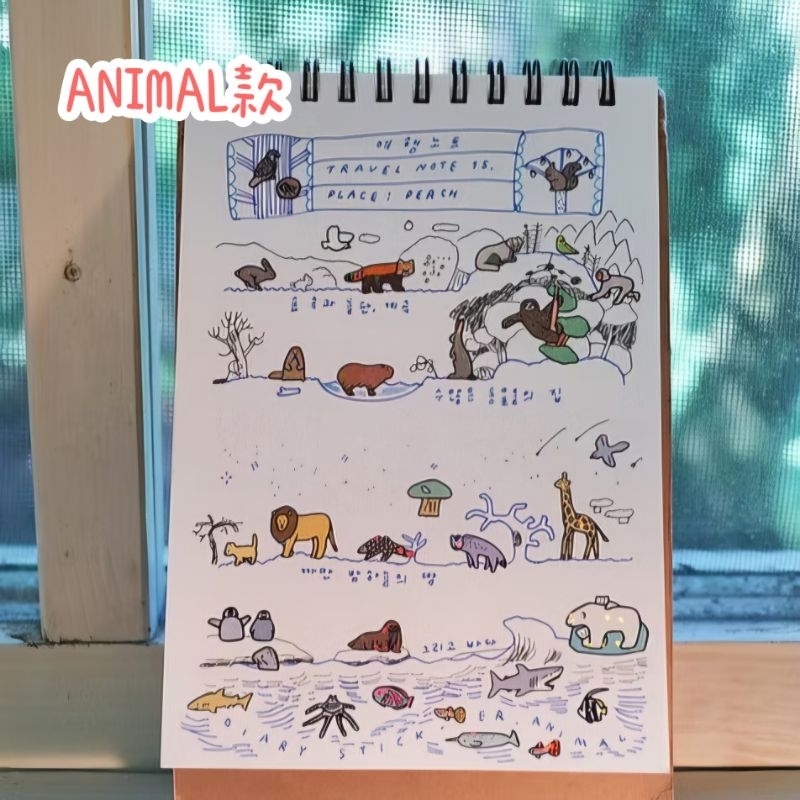 ANIMAL款
여행노트
TRAVEL NOTE 15.
PLACE: PEACH
수많은 동물의 집
까만 밤하늘의
그리고 바다
DIARY STICKER. ANIMAL